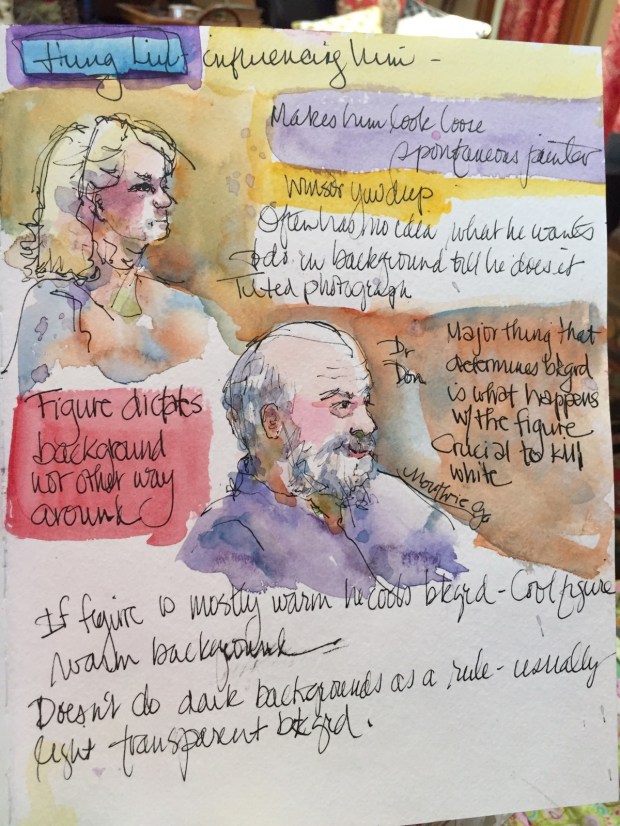 Hung Liu - influencing him -
Makes him look loose
spontaneous painter
winsor yw deep
Often has no idea what he wants
to do in background till he does it
Tilted photograph
Dr
Don
Major thing that
determines bkgrd
is what happens
w/ the figure
Crucial to kill
white
Moultrie Ga
Figure dictates
background
not other way
around
If figure is mostly warm he cools bkgrd - Cool figure
warm background
Doesn't do dark backgrounds as a rule - usually
light transparent bkgrd.